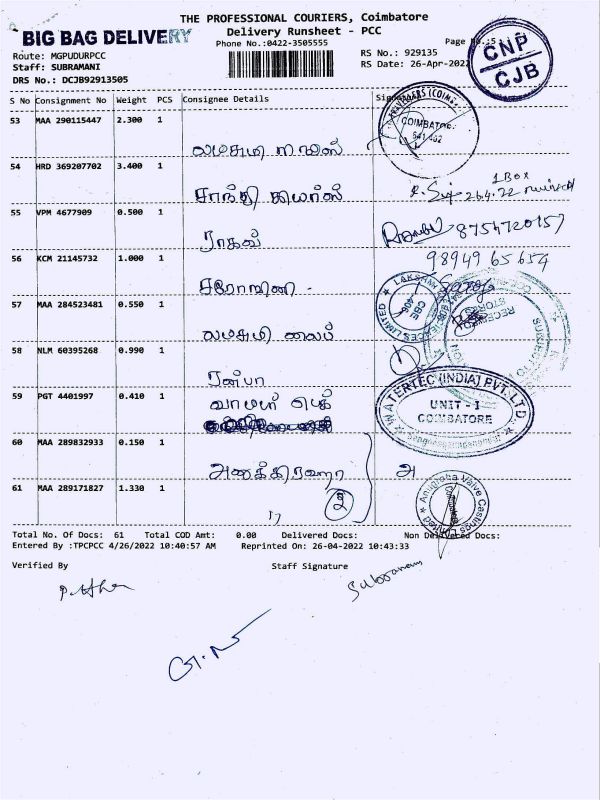 THE PROFESSIONAL COURIERS, Coimbatore
BIG BAG DELIVERY
Delivery Runsheet - PCC
Phone No.:0422-3505555
Page No.:5
Route: MGPUDURPCC
RS No.: 929135
Staff: SUBRAMANI
RS Date: 26-Apr-2022
DRS No.: DCJB92913505
CNP
CJB
S No Consignment No Weight PCS Consignee Details
53 MAA 290115447 2.300 1
COIMBATORE
லட்சுமி
54 HRD 369207702 3.400 1
1 BOX
சாந்தி கியர்ஸ்
26.4.22 received
55 VPM 4677909 0.500 1
ராகவ்
8754720157
56 KCM 21145732 1.000 1
98949 65654
சரோஜினி
Saroj
57 MAA 284523481 0.550 1
CBE
லட்சுமி லைப்
RECEIVED
STORES
SUBJECT TO
58 NLM 60395268 0.990 1
ரன்பா
59 PGT 4401997 0.410 1
வாட்டர் டெக்
WATERTEC (INDIA) PVT. LTD.
UNIT - I
COIMBATORE
60 MAA 289832933 0.150 1
அனுக்கிரஹா
அ
61 MAA 289171827 1.330 1
"
2
Anugraha Valve Castings Limited
Total No. Of Docs: 61 Total COD Amt: 0.00 Delivered Docs: Non Delivered Docs:
Entered By :TPCPCC 4/26/2022 10:40:57 AM Reprinted On: 26-04-2022 10:43:33
Verified By Staff Signature
Subramani